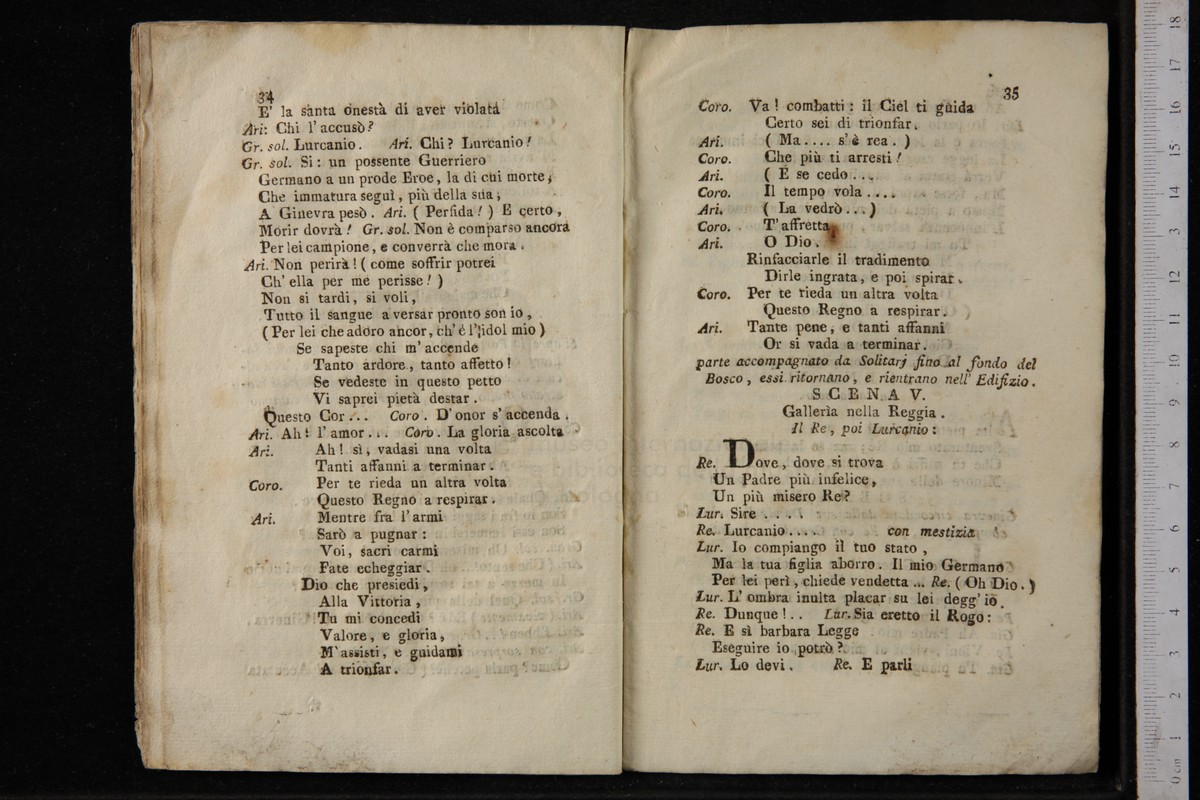 34
E' la santa onestà di aver violatà
Ari: Chi l'accusò?
Gr. sol. Lurcanio. Ari. Chi? Lurcanio!
Gr. sol. Si: un possente Guerriero
Germano a un prode Eroe, la di cui morte,
Che immatura seguì, più della sua,
A Ginevra pesò. Ari. ( Perfida! ) E certo,
Morir dovrà! Gr. sol. Non è comparso ancora
Per lei campione, e converrà che mora.
Ari. Non perirà! ( come soffrir potrei
Ch' ella per me perisse! )
Non si tardi, si voli,
Tutto il sangue a versar pronto son io,
( Per lei che adoro ancor, ch' è l'idol mio )
Se sapeste chi m' accende
Tanto ardore, tanto affetto!
Se vedeste in questo petto
Vi saprei pietà destar.
Questo Cor... Coro. D'onor s' accenda.
Ari. Ah! l' amor... Coro. La gloria ascolta
Ari. Ah! sì, vadasi una volta
Tanti affanni a terminar.
Coro. Per te rieda un altra volta
Questo Regno a respirar.
Ari. Mentre fra l'armi
Sarò a pugnar:
Voi, sacri carmi
Fate echeggiar.
Dio che presiedi,
Alla Vittoria,
Tu mi concedi
Valore, e gloria,
M'assisti, e guidami
A trionfar.
35
Coro. Va! combatti: il Ciel ti guida
Certo sei di trionfar.
Ari. ( Ma.... s'è rea. )
Coro. Che più ti arresti!
Ari. ( E se cedo...
Coro. Il tempo vola....
Ari. ( La vedrò...)
Coro. T'affretta,
Ari. O Dio.
Rinfacciarle il tradimento
Dirle ingrata, e poi spirar.
Coro. Per te rieda un altra volta
Questo Regno a respirar.
Ari. Tante pene, e tanti affanni
Or si vada a terminar.
parte accompagnato da Solitarj fino al fondo del
Bosco, essi ritornano, e rientrano nell' Edifizio.
SCENA V.
Gallerìa nella Reggia.
Il Re, poi Lurcanio:
Re. Dove, dove si trova
Un Padre più infelice,
Un più misero Re?
Lur. Sire....
Re. Lurcanio.... con mestizia
Lur. Io compiango il tuo stato,
Ma la tua figlia aborro. Il mio Germano
Per lei perì, chiede vendetta... Re. ( Oh Dio. )
Lur. L'ombra inulta placar su lei degg'io.
Re. Dunque!.. Lur. Sia eretto il Rogo:
Re. E sì barbara Legge
Eseguire io potrò?
Lur. Lo devi. Re. E parli